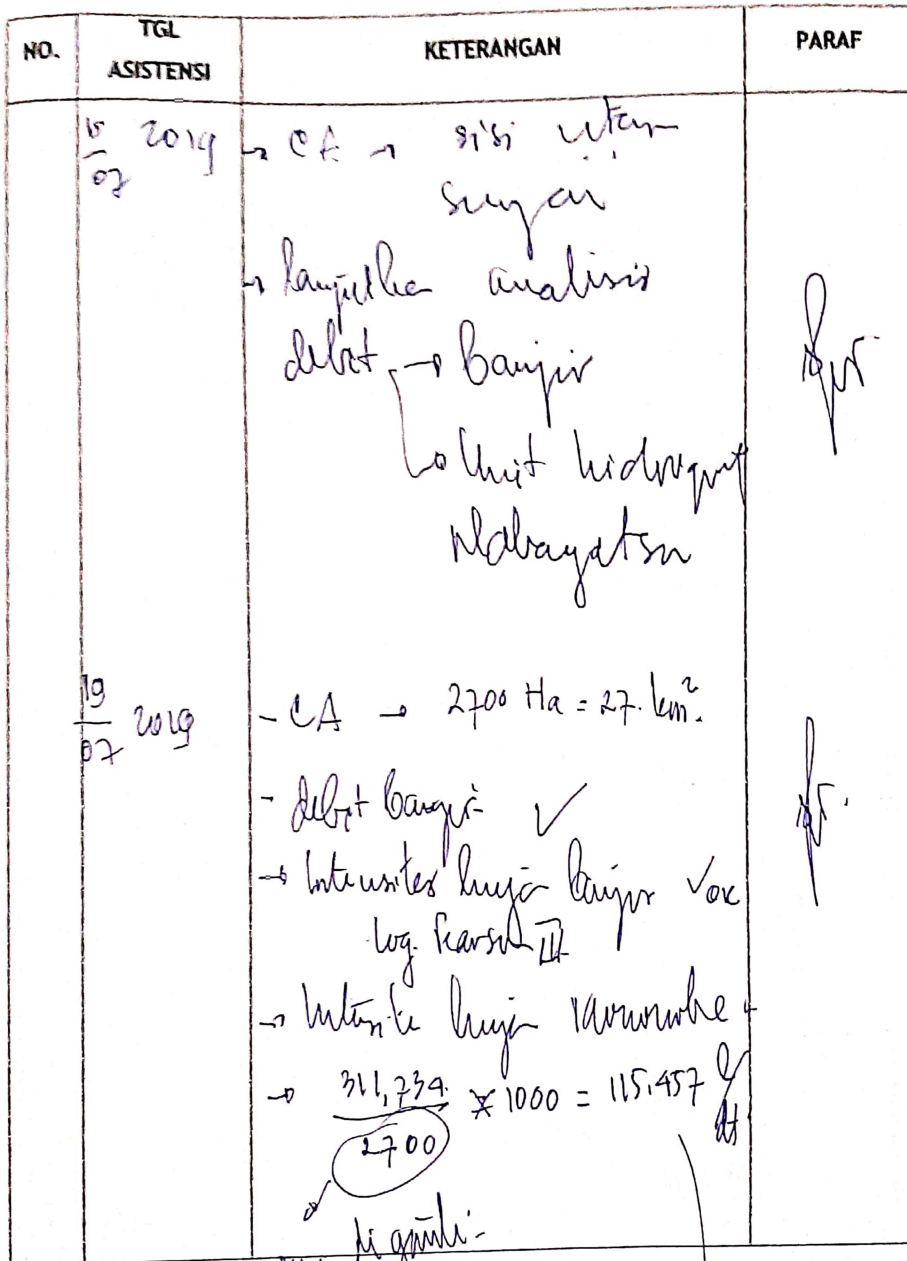 NO. TGL ASISTENSI KETERANGAN PARAF
15/07 2019 → CA → sisi utara
sungai
→ lanjutkan analisis
debit → banjir
→ Unit hidrograf
Nakayatsu
19/07 2019 - CA → 2700 Ha = 27. km².
- debit banjir ✓
→ Intensitas hujan banjir ✓ ok
log. Pearson III
→ Intensitas hujan mononobe
→ 311,734 / 2700 × 1000 = 115,457 l/dt